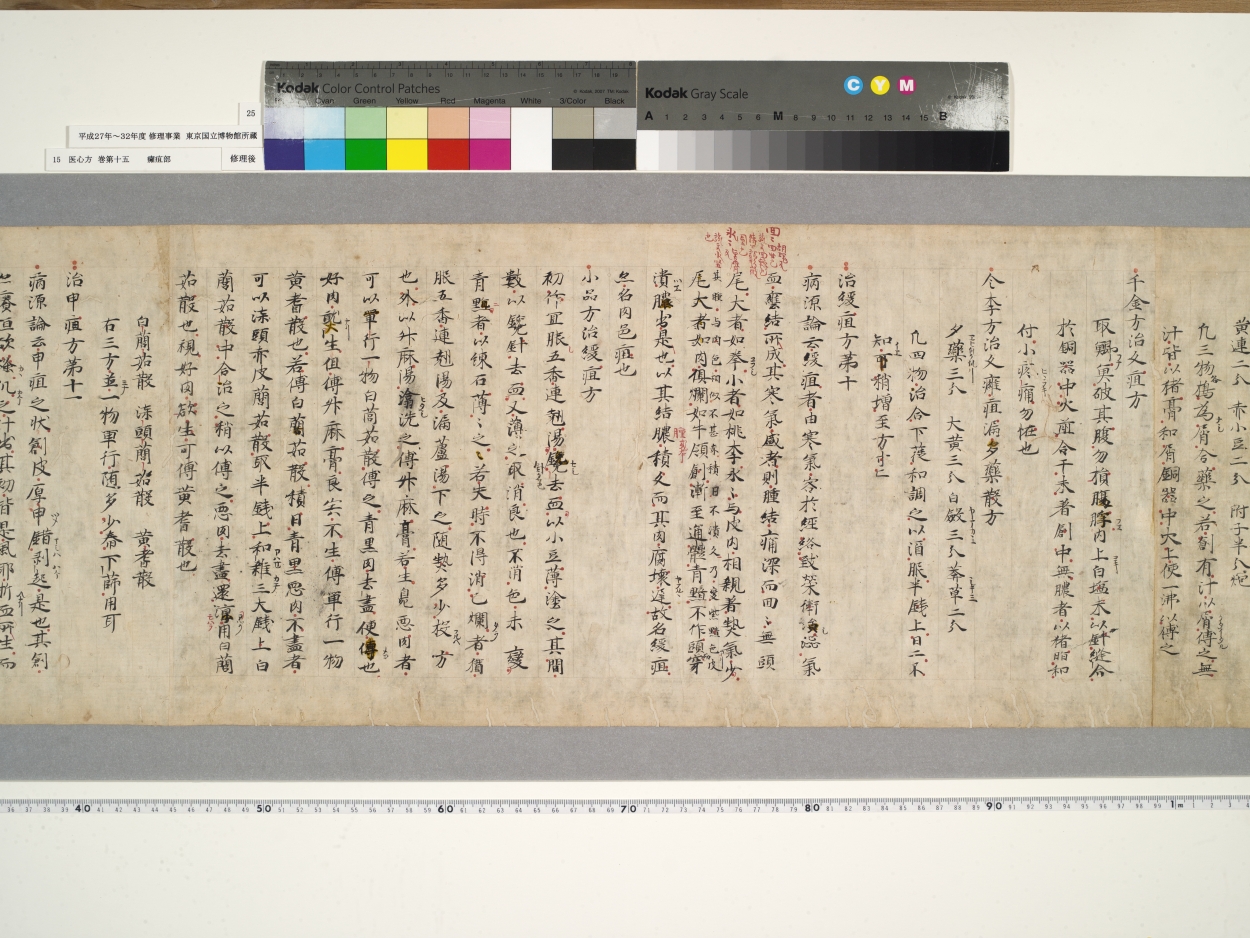 Kodak Color Control Patches
© Kodak, 2007 TM: Kodak
Cyan Green Yellow Red Magenta White 3/Color Black
Kodak Gray Scale
C Y M
A 1 2 3 4 5 6 M 8 9 10 11 12 13 14 15 B
25
平成27年〜32年度 修理事業 東京国立博物館所蔵
15 医心方 巻第十五 癰疽部 修理後
黄連二分 赤小豆二分 附子半分炮
九三物搗為屑合藥之若創有汁以屑傅之無
汁皆以猪膏和屑銅器中火上使一沸以傅之
千金方治久疽方
於銅器中火煎合干末著創中無膿者以猪脂和
付小疼痛勿怪也
仝李方治久癰疽漏多藥散方
夕藥三分 大黄三分 白蘞三分 莽草二分
凡四物治合下篩和調之以酒服半錢上日二不
知可稍增至方寸匕
治緩疽方第十
病源論云緩疽者由寒氣客於經絡致榮衛凝澁氣
血壅結所成其寒氣盛者則腫結痛深而回〻無頭
尾大者如拳小者如桃李氷〻与皮肉相親著熱氣少
潰膿者是也以其結膿積久而其肉腐壞遲故名緩疽
亡名肉色疽也
小品方治緩疽方
初作宜服五香連翹湯鑱去血以小豆薄塗之其間
數以鑱針去血又薄之取消良也不消色未變
青黯者以練石薄之〻若失時不得消已爛者猶
服五香連翹湯及漏蘆湯下之随熱多少投方
也外以升麻湯滄洗之傅升麻膏若生臭惡肉者
可以單行一物白䕡茹散傅之青黒肉去盡便傅也
好肉熟生但傅升麻膏良矣不生傅單行一物
黄耆散也若傅白䕡茹散積日青黒惡肉不盡者
可以柒頭赤皮䕡茹散取半錢上和雜三大錢上白
䕡茹散中合治之稍以傅之惡肉去盡還淳用白䕡
茹散也視好肉欲生可傅黄耆散也
白䕡茹散 柒頭䕡茹散 黄耆散
右三方並一物單行随多少舂下篩用耳
治甲疽方第十一
病源論云甲疽之状創皮厚甲錯剥起是也其創